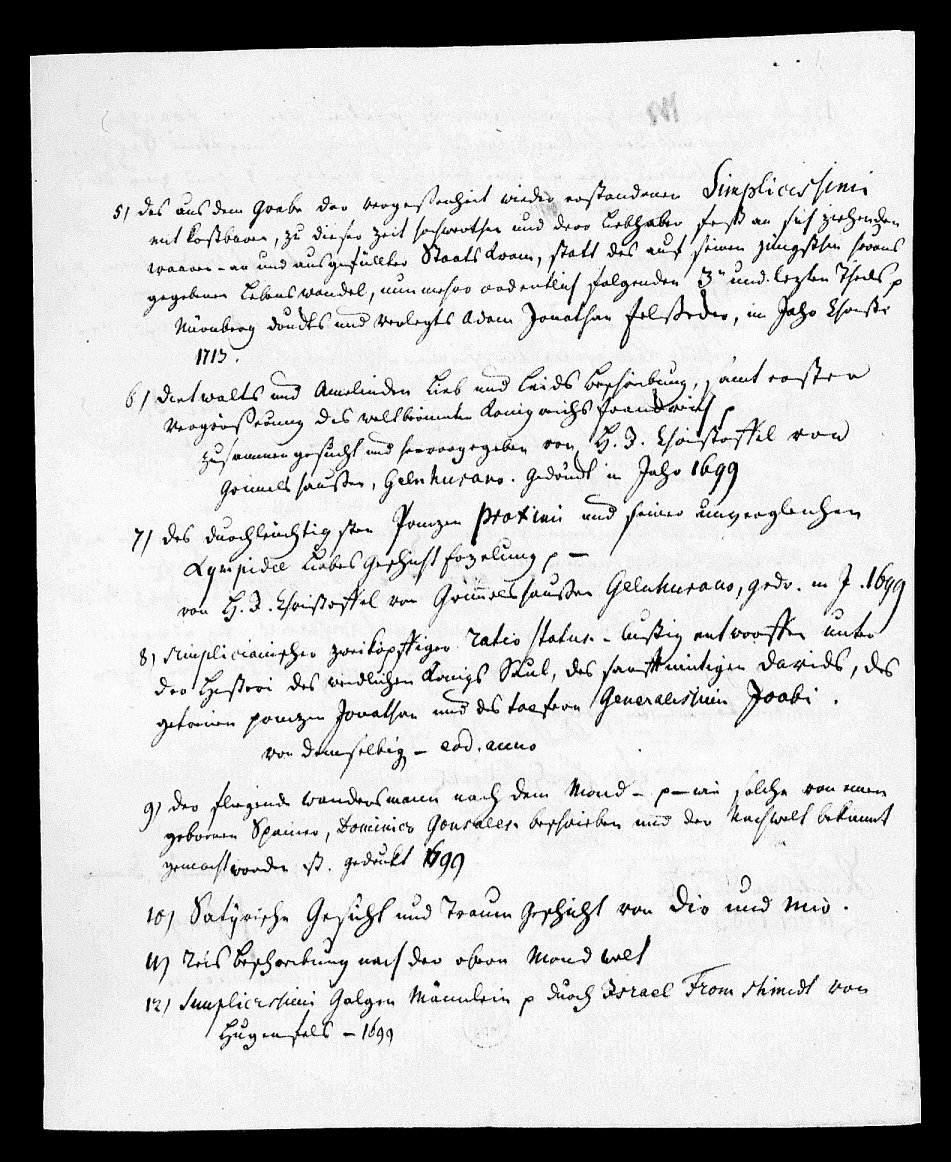 5) des aus dem Grabe der vergessenheit wieder erstandenen Simplicissimi
mit kostbaren, zu dieser Zeit hochwerthen und derer Liebhaber herz an sich ziehenden
waaren- an und ausgefüllter Staats Kram, statt des auf seinen jüngsthin heraus
gegebenen Lebenswandel, nunmehro ordentlich folgenden 3n und letzten Theils p
Nürnberg druckts und verlegts Adam Jonathan Felseker, im Jahr Christi
1713.
6) Dietwalts und Amelinden Lieb und Leids Beschreibung, samt erster
Vergrösserung des weltberümten Königreichs Frankreich p
zusammen gesucht und hervorgegeben von H. J. Christoffel von
Grimmelshausen, Gelnhusano. Gedruckt im Jahr 1699
7) des durchleuchtigsten Prinzen Proximi und seiner unvergleichen
Lympidae Liebes Geschicht Erzelung p –
von H. J. Christoffel von Grimmelshausen Gelnhusano, gedr. im J. 1699
8) Simplicianischer zweiköpffiger ratio status – lustig entworffen unter
der Histori des weidlichen Königs Saul, des sanftmütigen Davids, des
getreuen prinzen Jonathan und des tapfern Generalissimi Joabi.
von demselbig – eod. anno
9) der fliegende wandersmann nach dem Mond – p – wie solche von einem
gebornen Spanier, Dominico Gonsales – beschrieben und der Nachwelt bekannt
gemacht worden ist. gedruckt 1699
10) Satyrische Gesicht und Traum Geschicht von Dir und Mir.
11) Reis Beschreibung nach der obern Mond welt
12) Simplicissimi Galgen Männlein p durch Israel Fromschmidt von
Hugenfels – 1699